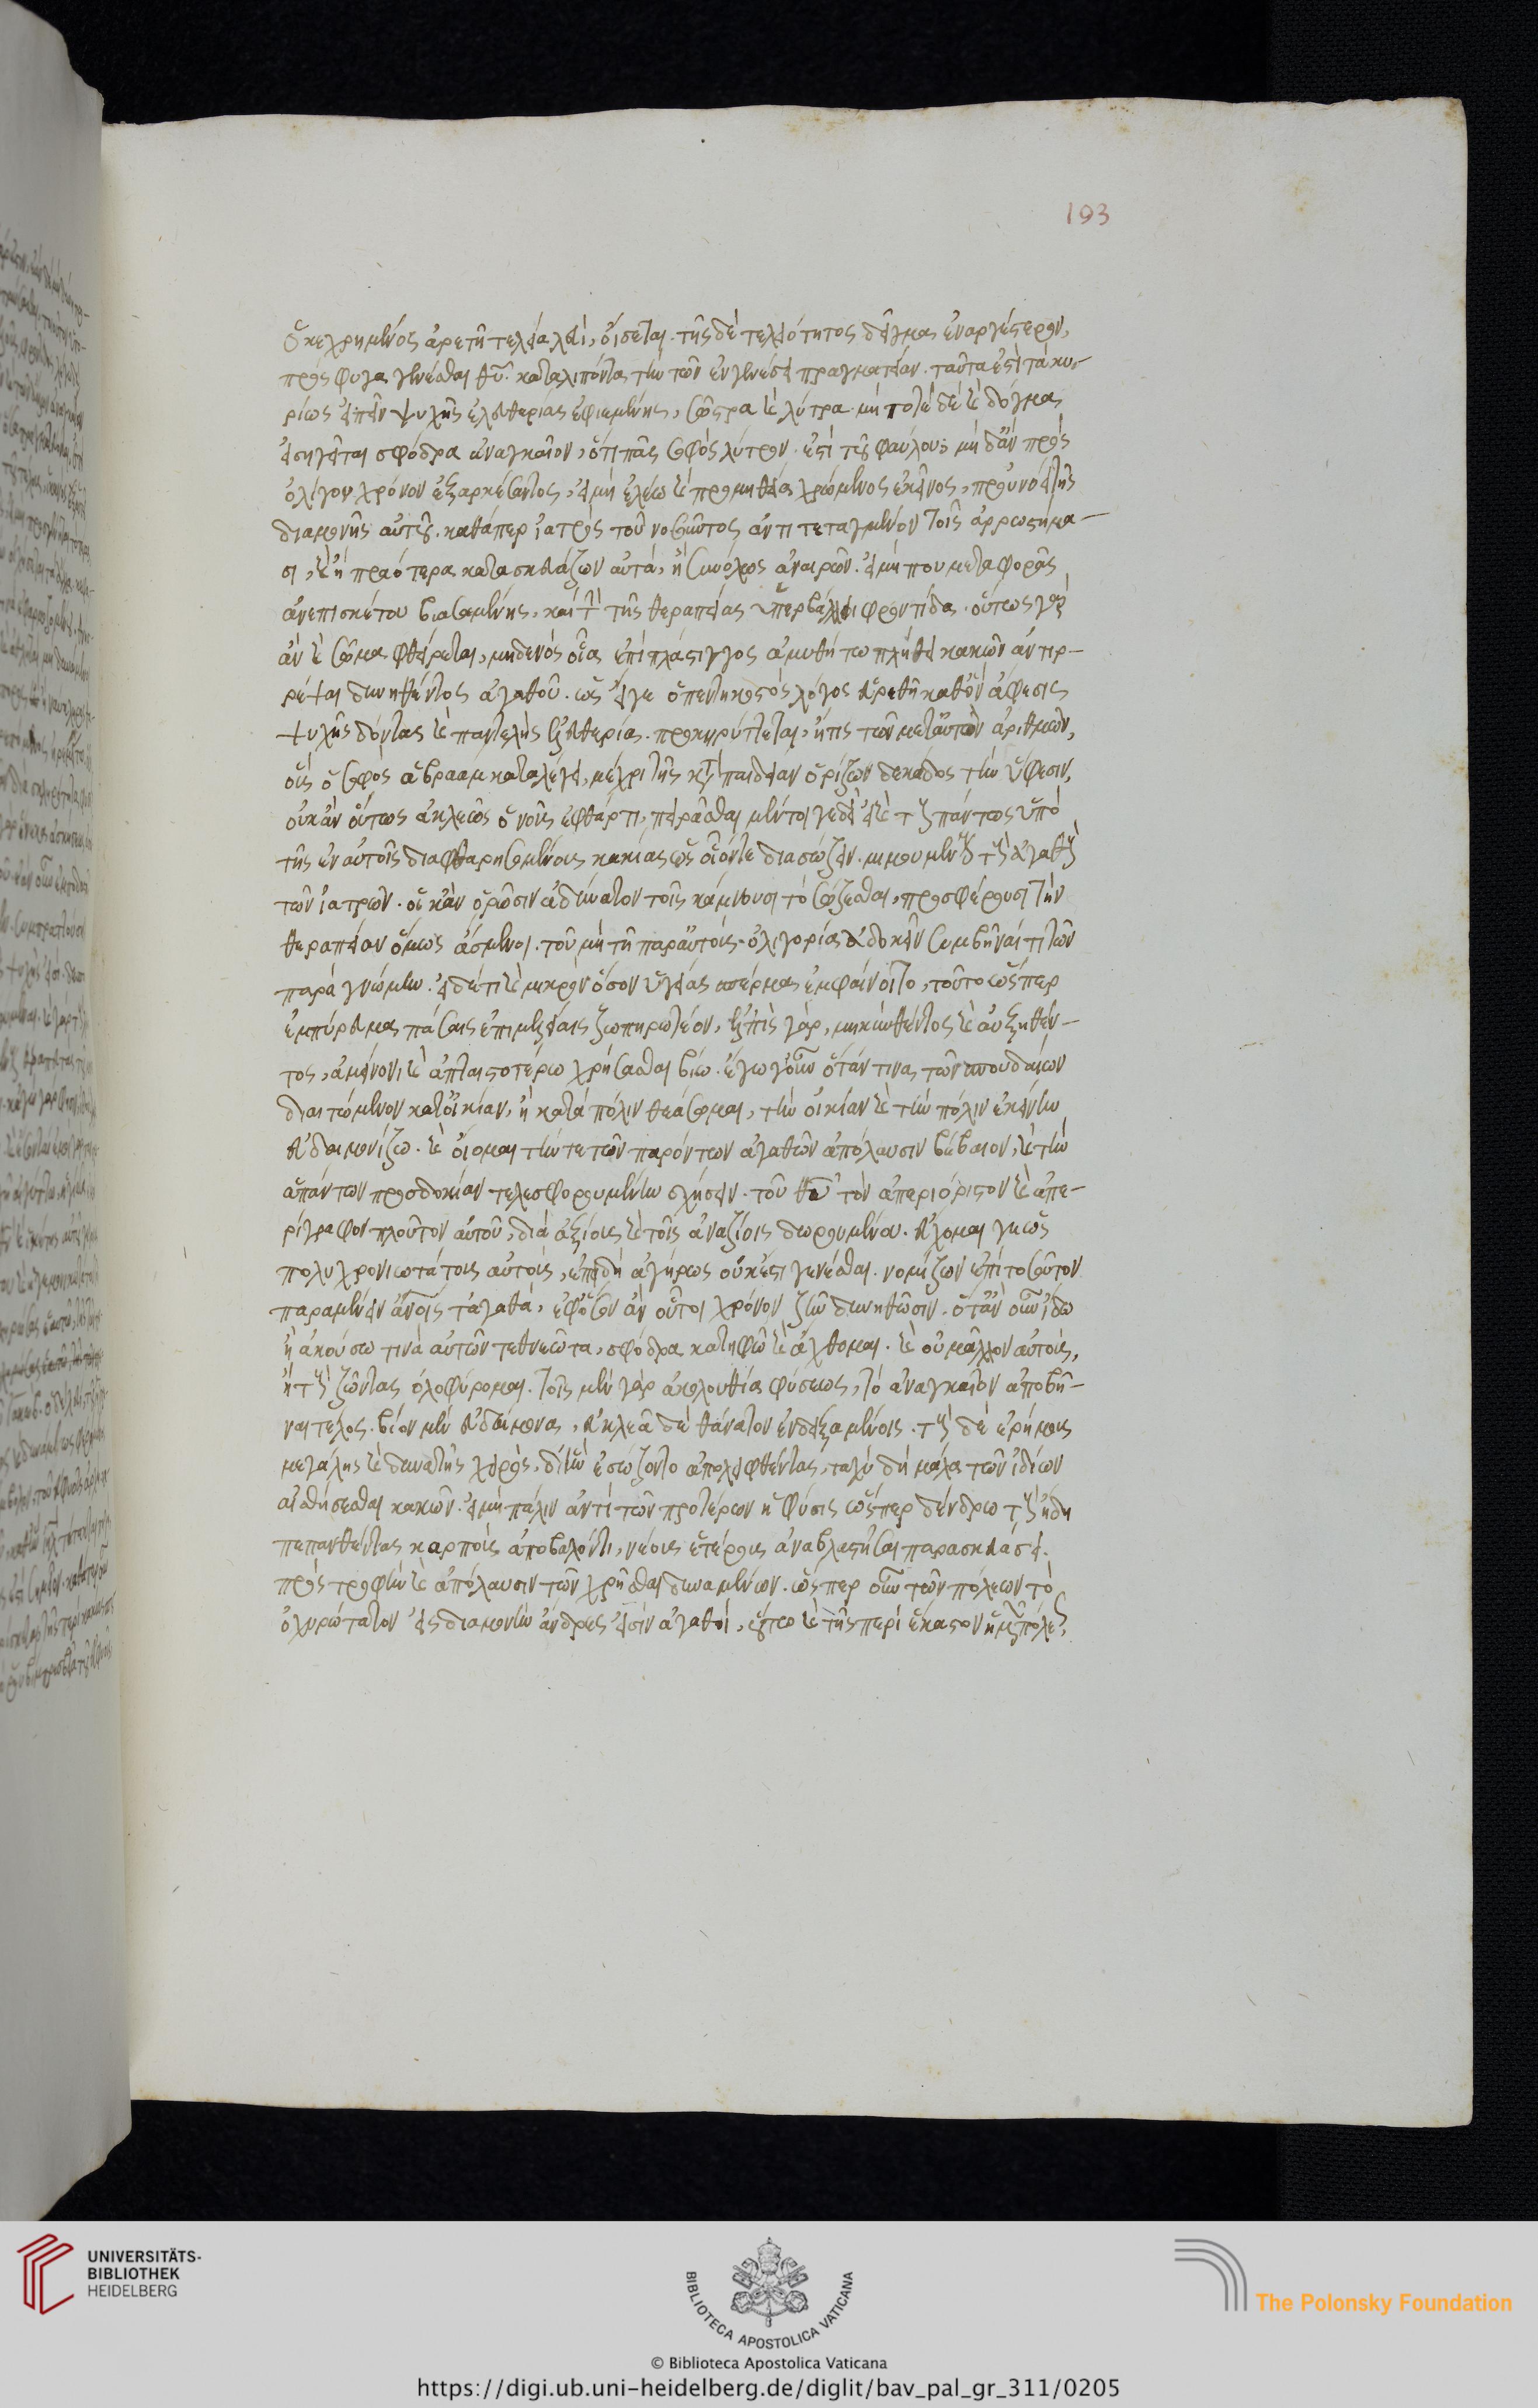 ὁ κεχρημένος ἀρετῇ τελείᾳ λευὶ, οἴσεται. τῆς δὲ τελειότητος δεῖγμα ἐναργέστερον,
πρόσφυγα γενέσθαι θῦ. καταλιπόντα τὴν τῶν ἐν γενέσει πραγματείαν. ταῦτα ἐστὶ τὰ κυ-
ρίως εἰπεῖν ψυχῆς ἐλευθερίας ἐφιεμένης, σῶστρα καὶ λύτρα. μή ποτε δὲ καὶ δόγμα
εἰσηγεῖται σφόδρα ἀναγκαῖον, ὅτι πᾶς σοφὸς λύτρον ἐστὶ τοῦ φαύλου μὴ δἂν πρὸς
ὀλίγον χρόνον ἐξαρκέσαντος, εἰ μὴ ἐλέω καὶ προμηθεία χρώμενος ἐκεῖνος, προυνόει τῆς
διαμονῆς αὐτοῦ. καθάπερ ἰατρὸς τοῦ νοσοῦντος ἀντιτεταγμένον τοῖς ἀρρωστήμα-
σι, καὶ ἢ πραότερα κατασκευάζων αὐτὰ, ἢ συνόλως ἀναιρῶν. εἰ μή που μετὰ φορᾶς
ἀνεπισχέτου βιασαμένης, καὶ τὴν τῆς θεραπείας ὑπερβάλλει φροντίδα. οὕτως γὰρ
ἂν καὶ σῶμα φθείρεται, μηδενὸς οἷα ἐπὶ πλάστιγγος ἀμυθήτω πλήθει κακῶν ἀντιρ-
ρέψαι δυνηθέντος ἀγαθοῦ. ὡς εἴγε ὁ πεντηκοστὸς λόγος εὑρεθῆ καθ' ὃν ἄφεσις
ψυχῆς δόντας καὶ παντελὴς ἐλευθερία προκηρύττεται, ἤτις τῶν μετ' αὐτὸν ἀριθμῶν,
οὓς ὁ σοφὸς ἀβραὰμ καταλέγει, μέχρι τῆς κατὰ παιδείαν ὁρίζων δεκάδος τὴν ὕφεσιν,
οὐκ ἂν οὕτως ἀκλεῶς ὁ νοῦς ἐφθάρη, πειρᾶσθαι μέντοι γε δεῖ καὶ τοὺς πάντως ὑπὸ
τῆς ἐν αὐτοῖς διαφθαρησομένοις κακίας ὡς οἷόν τε διασώζειν. μιμουμένους τοὺς ἀγαθοὺς
τῶν ἰατρῶν. οἳ κἂν ὁρῶσιν ἀδύνατον τοῖς κάμνουσι τὸ σώζεσθαι, προσφέρουσι τὴν
θεραπείαν ὅμως ἄσμενοι. τοῦ μὴ τῇ παρ' αὐτοῖς ὀλιγορία δοκεῖν συμβῆναί τι τῶν
παρὰ γνώμην. εἰ δέ τι καὶ μικρὸν ὅσον ὑγείας σπέρμα ἐμφαίνοιτο, τοῦτο ὥσπερ
ἐμπύρευμα πάσαις ἐπιμελείαις ζωπηρωτέον, ἐλπὶς γὰρ, μηκυνθέντος καὶ αὐξηθέν-
τος, ἀμείνονι καὶ ἀπταιστοτέρω χρήσασθαι βίω. ἐγὼ γοῦν ὅτάν τινα τῶν σπουδαίων
διαιτώμενον κατ' οἰκίαν, ἢ κατὰ πόλιν θεάσωμαι, τὴν οἰκίαν καὶ τὴν πόλιν ἐκείνην
εὐδαιμονίζω. καὶ οἴομαι τήν τε τῶν παρόντων ἀγαθῶν ἀπόλαυσιν βέβαιον, καὶ τὴν
ἁπάντων προσδοκίαν τελεσφορουμένην σχήσειν. τοῦ θῦ τὸν ἀπεριόριστον καὶ ἀπε-
ρίγραφον πλοῦτον αὐτοῦ, διὰ ἀξίους καὶ τοῖς ἀναξίοις δωρουμένου. εὔχομαι γε ὡς
πολυχρονιωτάτοις αὐτοῖς, ἐπειδὴ ἀγήρως οὐκ ἔστι γενέσθαι. νομίζων ἐπὶ τοσοῦτον
παραμένειν ἀνοις τἀγαθὰ, ἐφ' ὅσον ἂν οὗτοι χρόνον ζῆν δυνηθῶσιν. ὅτ' ἂν οὖν ἴδω
ἢ ἀκούσω τινὰ αὐτῶν τεθνεῶτα, σφόδρα κατηφῶ καὶ ἄχθομαι. καὶ οὐ μᾶλλον αὐτοὺς,
ἢ τοὺς ζῶντας ὀλοφύρομαι. τοῖς μὲν γὰρ ἀκολουθία φύσεως, τὸ ἀναγκαῖον ἀποβῆ-
ναι τέλος. βίον μὲν εὐδαίμονα, εὐκλεᾶ δὲ θάνατον ἐνδειξαμένοις. τοὺς δὲ ἐρήμους
μεγάλης καὶ δυνατῆς χειρὸς, δι' ἣν ἐσώζοντο ἀπολειφθέντας, ταχὺ δὴ μάλα τῶν ἰδίων
αἰσθήσεσθαι κακῶν. εἰ μὴ πάλιν ἀντὶ τῶν προτέρων ἡ φύσις ὥσπερ δένδρω τοὺς ἤδη
πεπανθέντας καρποὺς ἀποβαλόντι, νέους ἑτέρους ἀναβλαστῆσαι παρασκευάσει.
πρὸς τροφὴν καὶ ἀπόλαυσιν τῶν χρῆσθαι δυναμένων. ὥσπερ οὖν τῶν πόλεων τὸ
ὀχυρώτατον εἰς διαμονὴν ἄνδρες εἰσὶν ἀγαθοὶ, οὕτω καὶ τῆς περὶ ἕκαστον ἡμῶν πόλεως
193
UNIVERSITÄTS-
BIBLIOTHEK
HEIDELBERG
BIBLIOTECA APOSTOLICA VATICANA
The Polonsky Foundation
© Biblioteca Apostolica Vaticana
https://digi.ub.uni-heidelberg.de/diglit/bav_pal_gr_311/0205